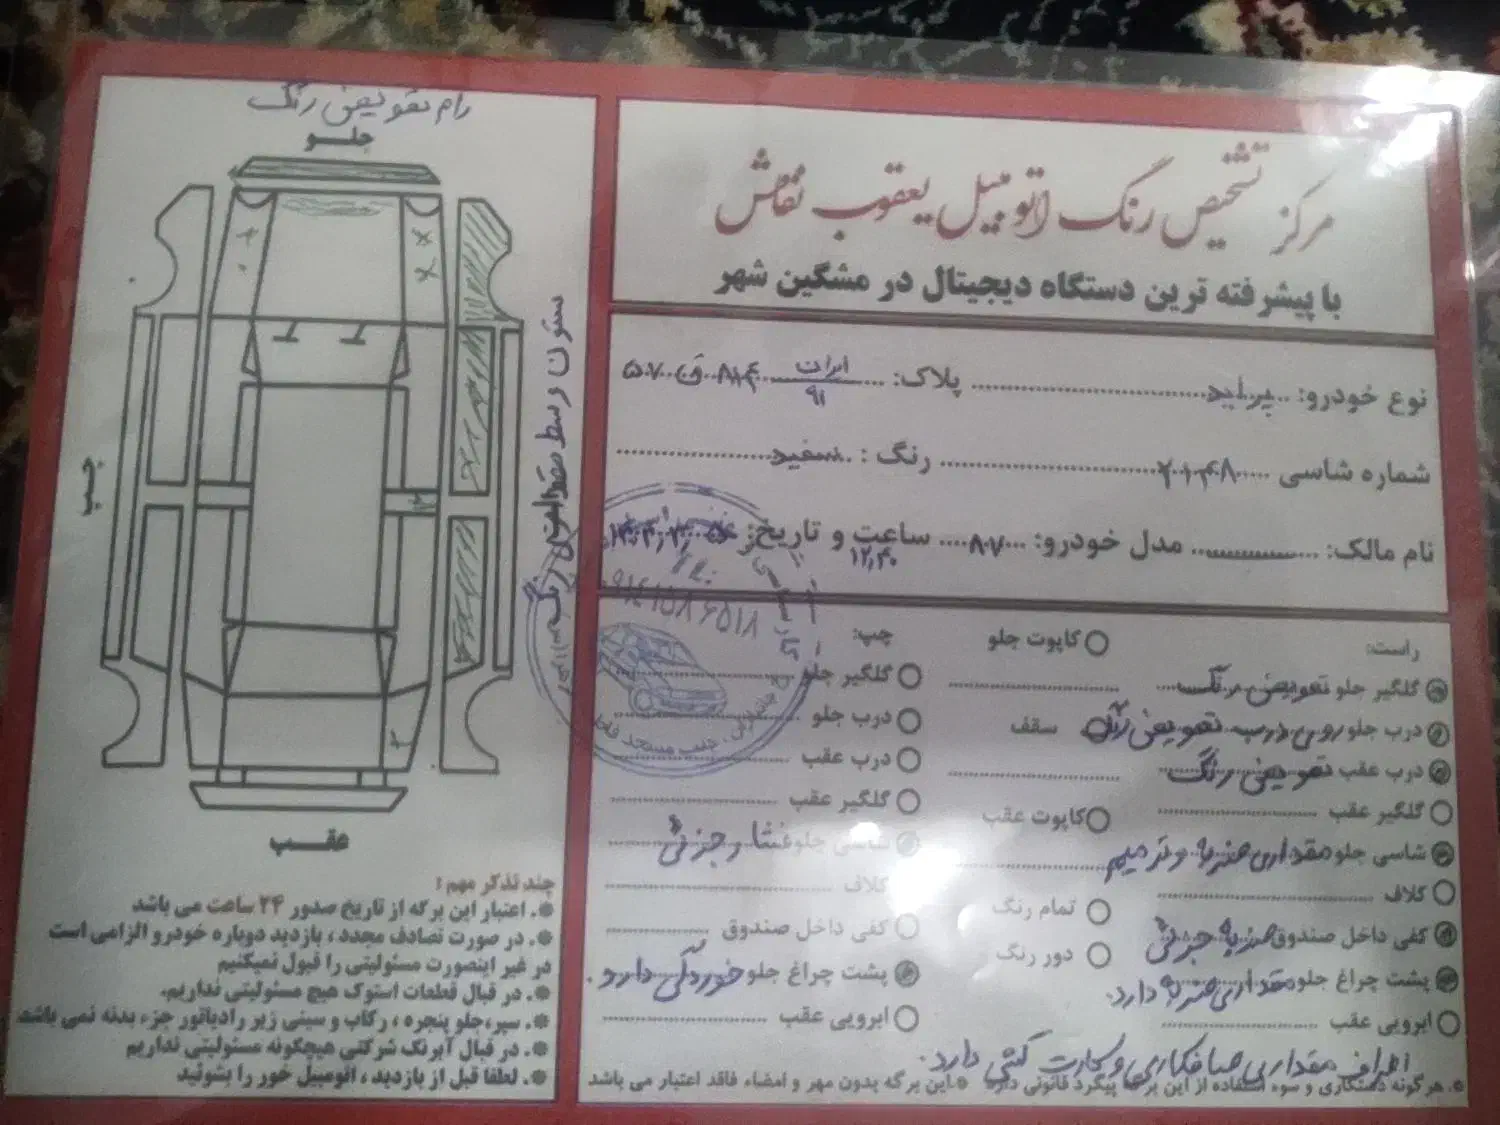 مرکز تشخیص رنگ اتومبیل یعقوب نقاش
با پیشرفته ترین دستگاه دیجیتال در مشگین شهر
نوع خودرو: پراید پلاک: ایران ۹۱
شماره شاسی رنگ: سفید
نام مالک: مدل خودرو: ۸۰۷ ساعت و تاریخ:
۱۲،۴۰
راست:
گلگیر جلو تعویض رنگ
درب جلو روی درب تعویض رنگ
درب عقب تعویض رنگ
گلگیر عقب
شاسی جلو مقداری ضربه و ترمیم
کلاف
کفی داخل صندوق ضربه جزئی
پشت چراغ جلو مقداری ضربه دارد.
ابرویی عقب
کاپوت جلو
سقف
کاپوت عقب
تمام رنگ
دور رنگ
چپ:
گلگیر جلو
درب جلو
درب عقب
گلگیر عقب
شاسی جلو فشار جزئی
کلاف
کفی داخل صندوق
پشت چراغ جلو خوردگی دارد.
ابرویی عقب
اطراف مقداری صافکاری و کارت کشی دارد.
*. هرگونه دستکاری و سوء استفاده از این برگه پیگرد قانونی دارد *این برگه بدون مهر و امضاء فاقد اعتبار می باشد
رام تعویض رنگ
جلـو
چپ
ستون وسط مقداری رنگ
عقـب
چند تذکر مهم:
*. اعتبار این برگه از تاریخ صدور ۲۴ ساعت می باشد
*. در صورت تصادف مجدد، بازدید دوباره خودرو الزامی است
در غیر اینصورت مسئولیتی را قبول نمیکنیم
*. در قبال قطعات استوک هیچ مسئولیتی نداریم.
*. سپر، جلو پنجره، رکاب و سینی زیر رادیاتور جزء بدنه نمی باشد
*. در قبال آبرنگ شرکتی هیچگونه مسئولیتی نداریم
*. لطفا قبل از بازدید، اتومبیل خور را بشوئید